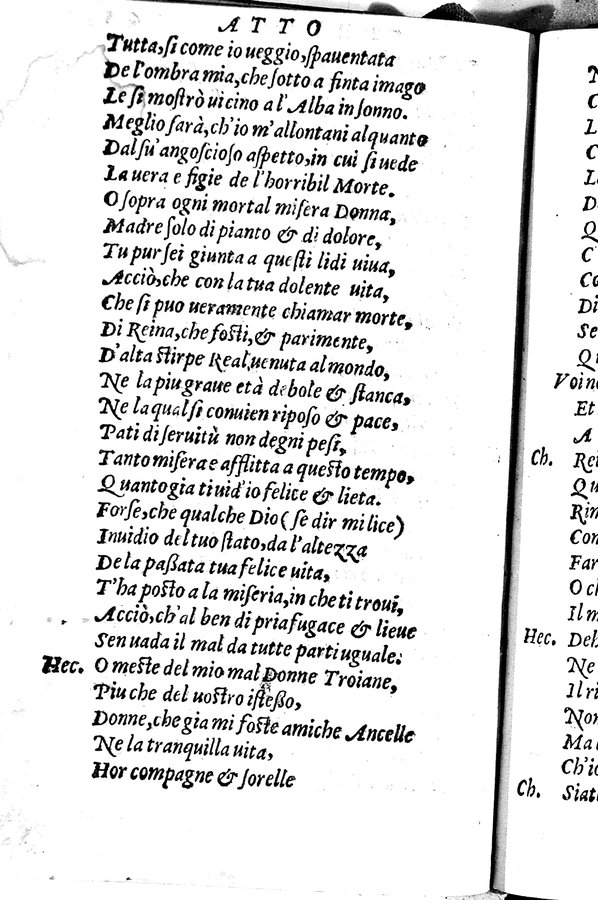 ATTO
Tutta, ſi come io ueggio, ſpauentata
De l'ombra mia, che ſotto a finta imago
Le ſi moſtrò uicino a l'Alba in ſonno.
Meglio ſarà, ch'io m'allontani alquanto
Dal ſu' angoſcioſo aſpetto, in cui ſi uede
La uera e figie de l'horribil Morte.
O ſopra ogni mortal miſera Donna,
Madre ſolo di pianto & di dolore,
Tu pur ſei giunta a queſti lidi uiua,
Acciò, che con la tua dolente uita,
Che ſi puo ueramente chiamar morte,
Di Reina, che foſti, & parimente,
D'alta ſtirpe Real, uenuta al mondo,
Ne la piu graue età debole & ſtanca,
Ne la qual ſi conuien ripoſo & pace,
Pati di ſeruitù non degni peſi,
Tanto miſera e afflitta a queſto tempo,
Quanto gia ti uid' io felice & lieta.
Forſe, che qualche Dio (ſe dir mi lice)
Inuidio del tuo ſtato, da l'altezza
De la paßata tua felice uita,
T'ha poſto a la miſeria, in che ti troui,
Acciò, ch'al ben di pria fugace & lieue
Sen uada il mal da tutte parti uguale.
Hec. O meſte del mio mal Donne Troiane,
Piu che del uoſtro iſteßo,
Donne, che gia mi foſte amiche Ancelle
Ne la tranquilla uita,
Hor compagne & ſorelle
N
C
L
C
L
D
Q
C
Co
Di
Se
Qu
Voi no
Et
A
Ch. Rei
Qu
Rim
Con
Far
O ch
Il m
Hec. Deh
Ne
Il ri
Non
Ma c
Ch'io
Ch. Siat